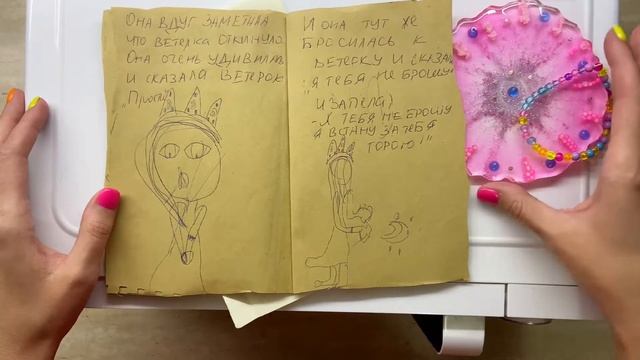 ОНА ВДУГ ЗАМЕТИЛА
ЧТО ВЕТЕРКА ОТКИНУЛО
ОНА ОЧЕНЬ УДИВИЛАСЬ
И СКАЗАЛА ВЕТЕРОК
И ОНА ТУТ ЖЕ
БРОСИЛАСЬ К
ВЕТЕРКУ И СКАЗАЛА
"Я ТЕБЯ НЕ БРОШУ"
И ЗАПЕЛА)
-Я ТЕБЯ НЕ БРОШУ
Я ВСТАНУ ЗА ТЕБЯ
ГОРОЮ!"